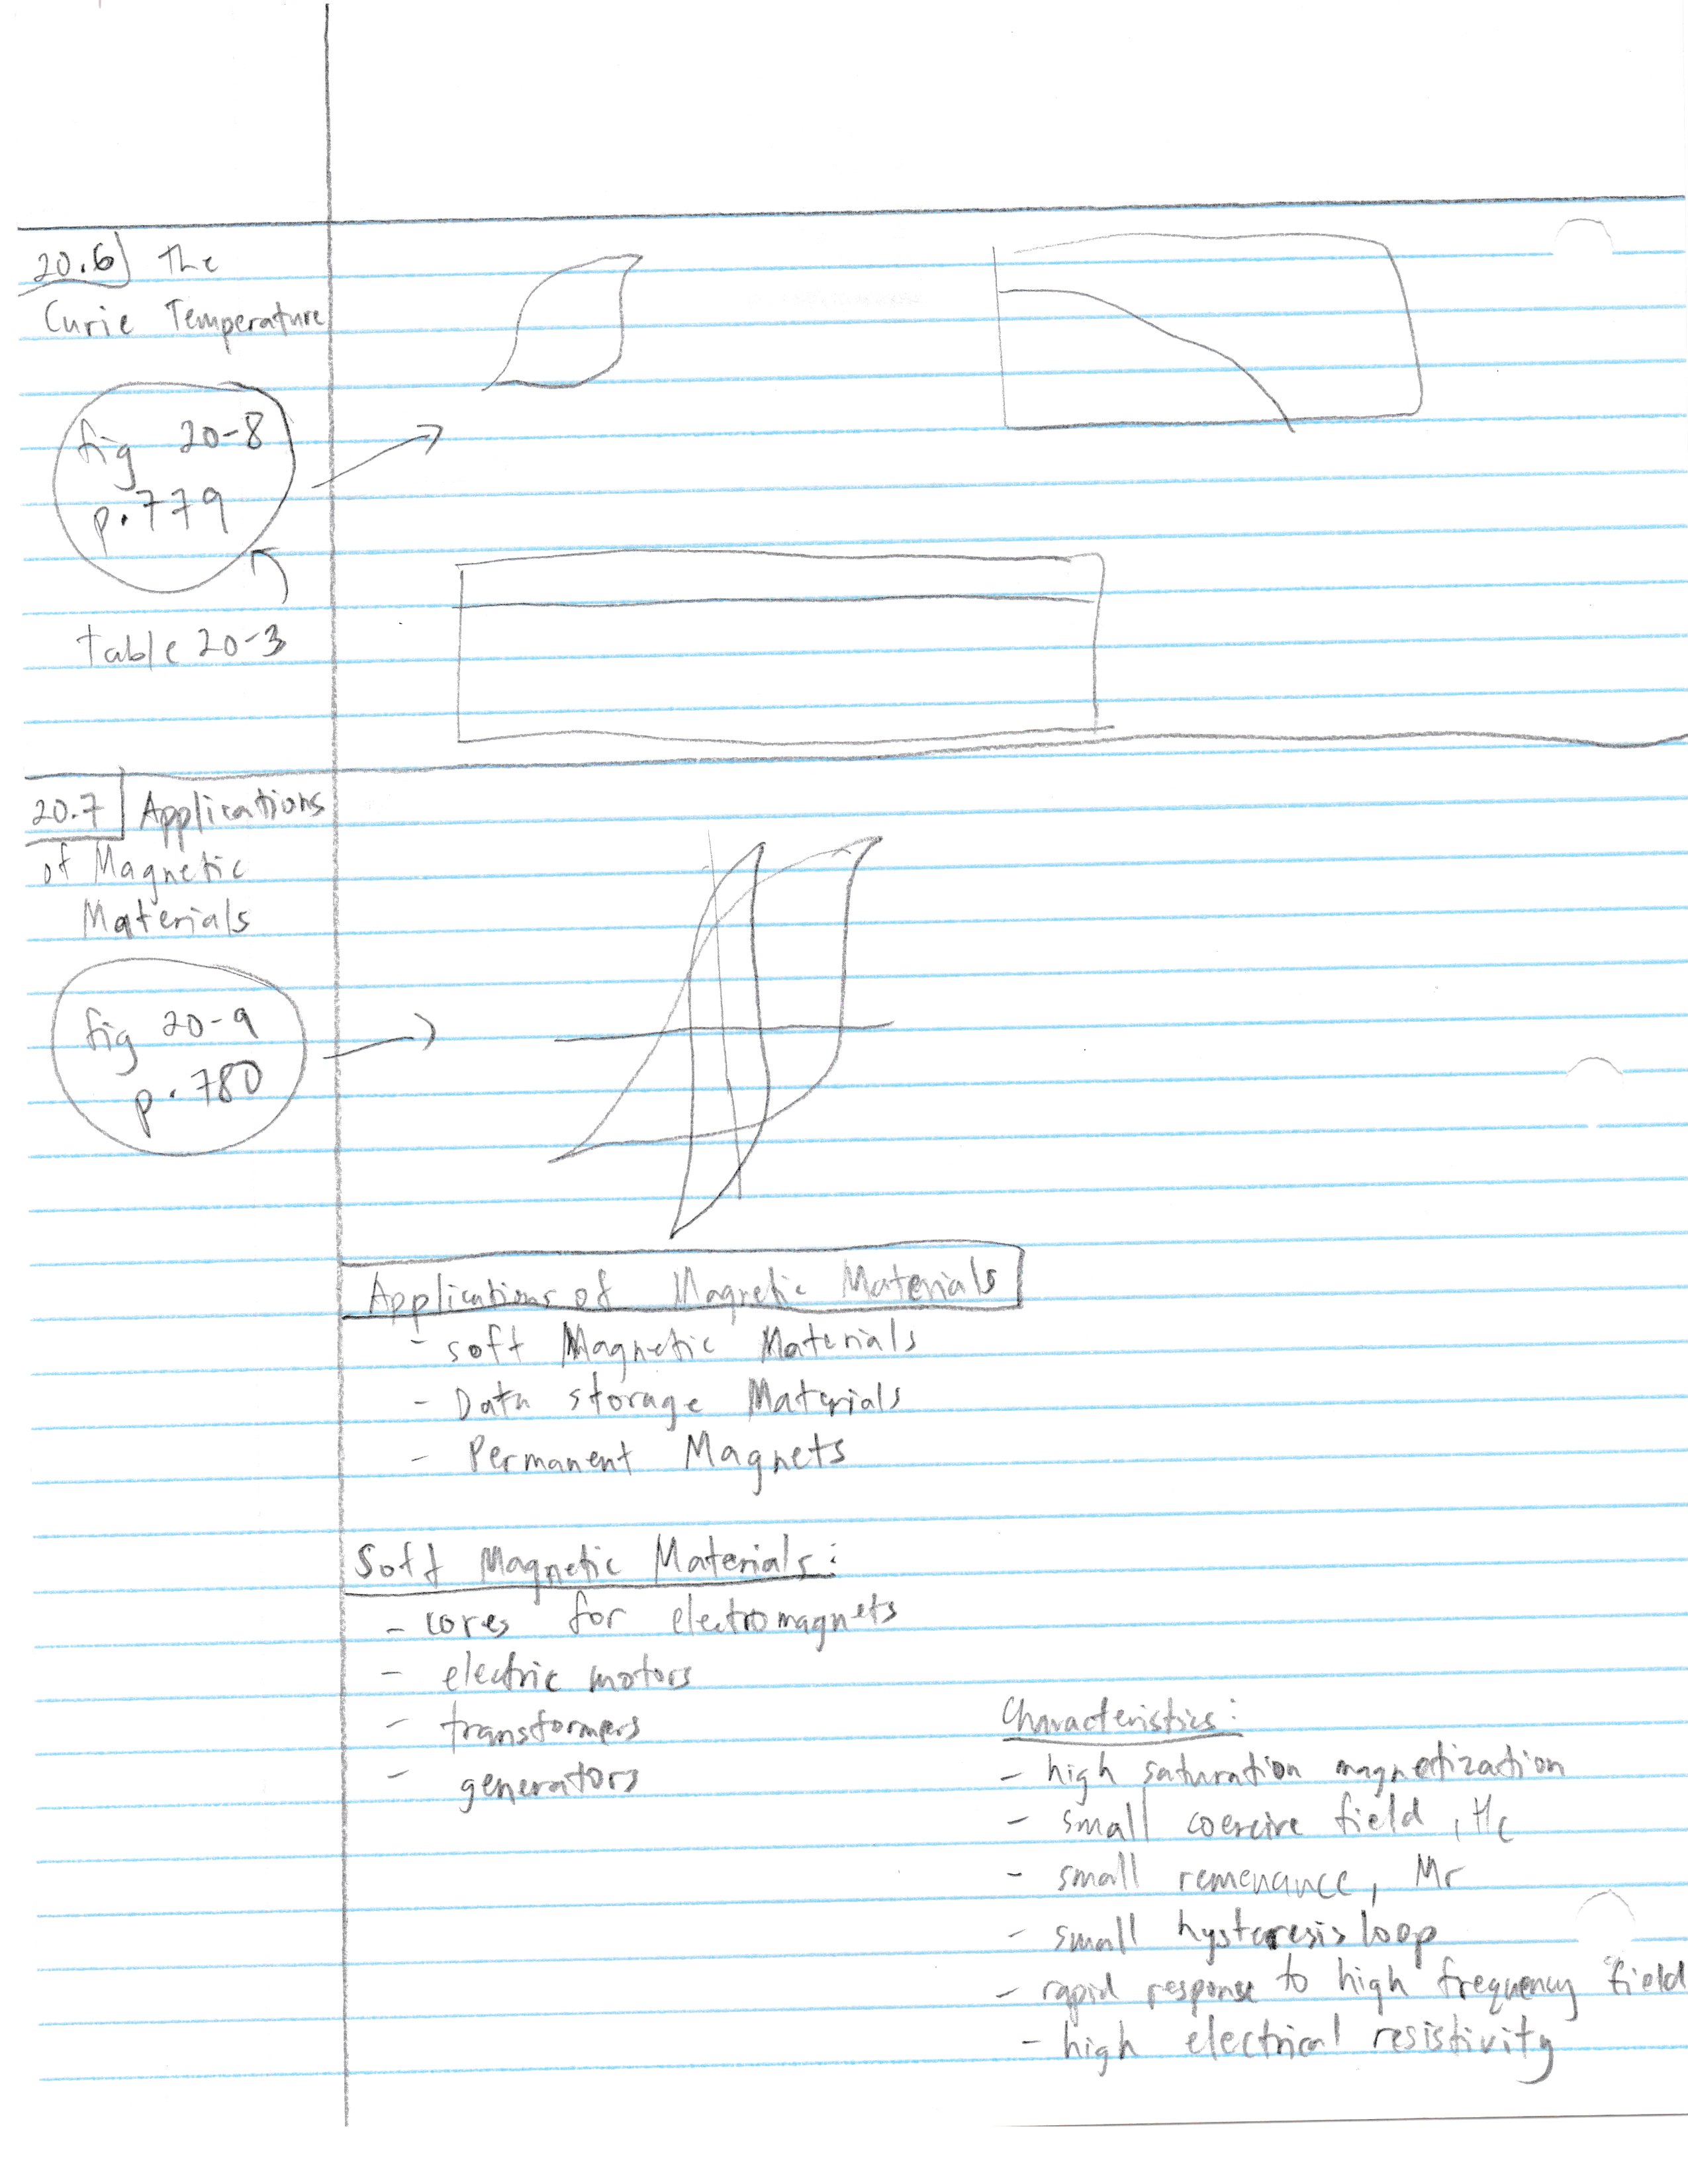 20.6 The
Curie Temperature
fig 20-8
p.779
table 20-3
20.7 Applications
of Magnetic
Materials
fig 20-9
p.780
Applications of Magnetic Materials
- soft Magnetic Materials
- Data storage Materials
- Permanent Magnets
Soft Magnetic Materials:
- cores for electromagnets
- electric motors
- transformers
- generators
Characteristics:
- high saturation magnetization
- small coercive field, Hc
- small remenance, Mr
- small hysteresis loop
- rapid response to high frequency field
- high electrical resistivity